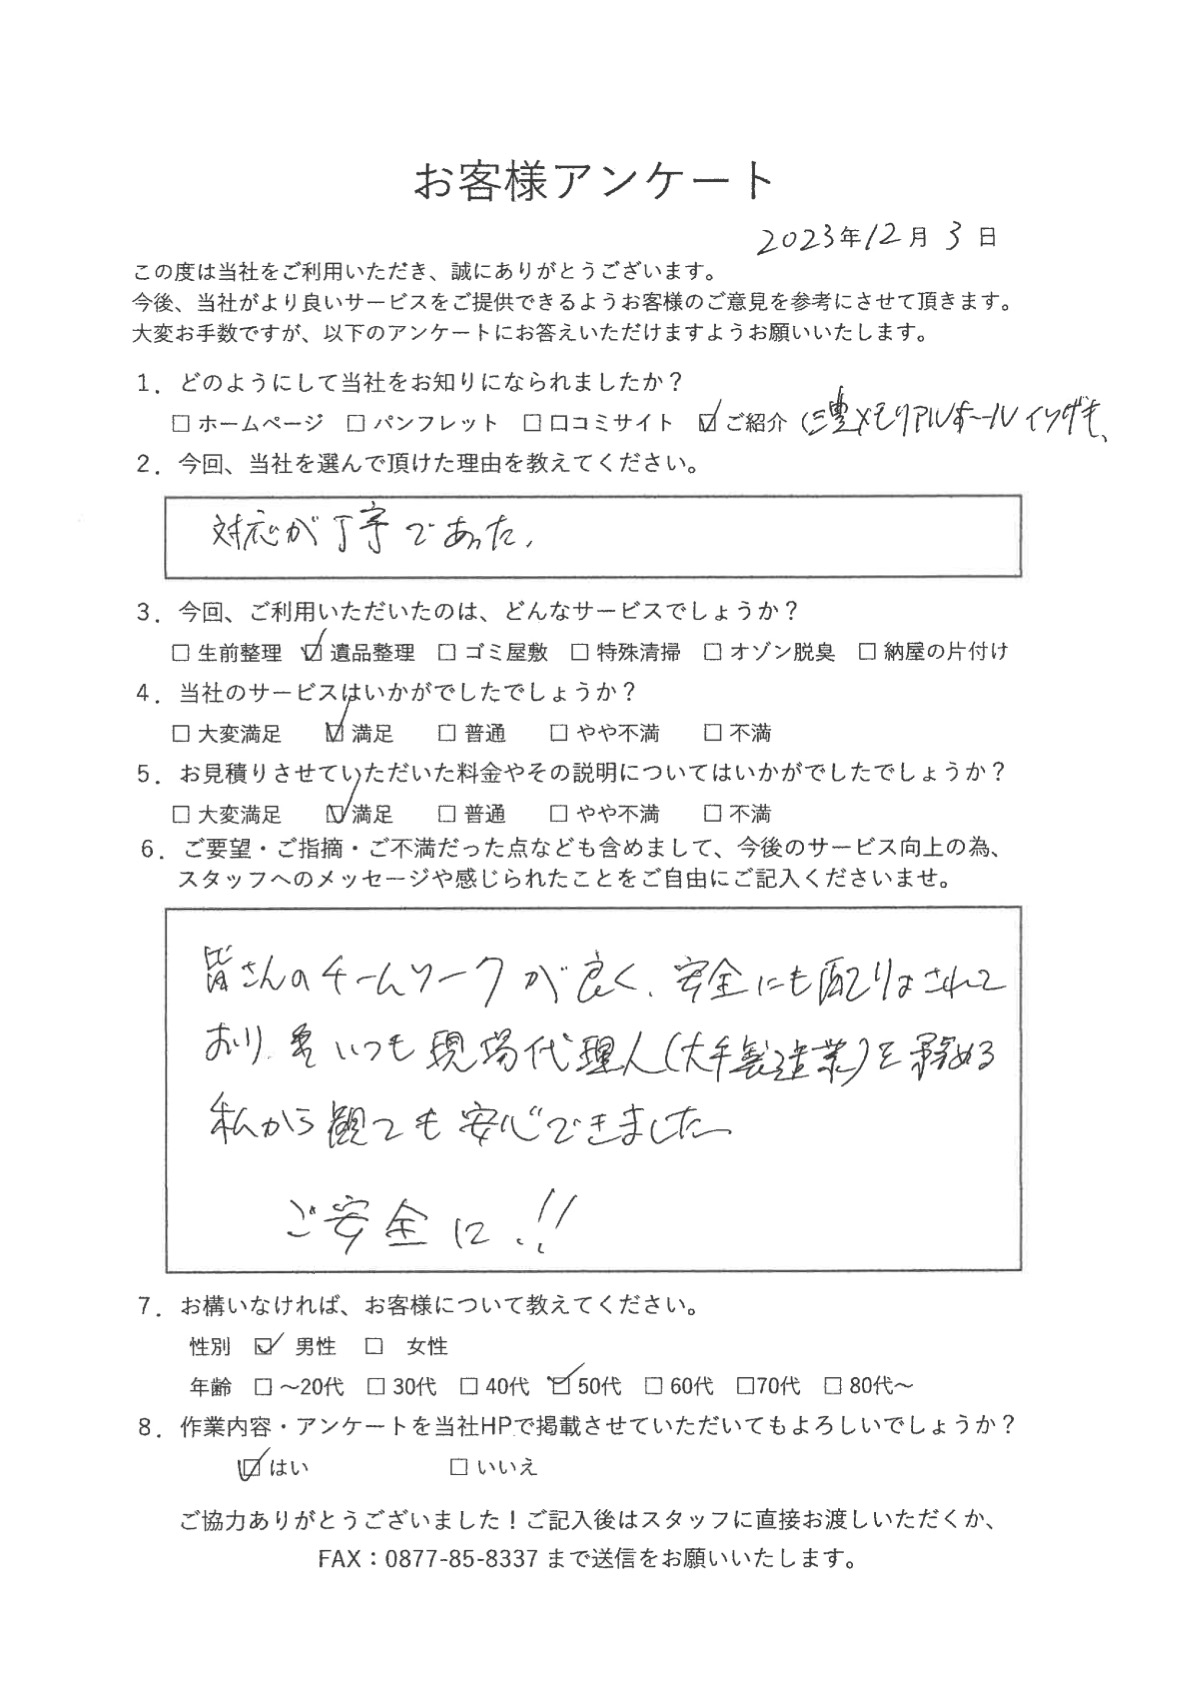 お客様アンケート
2023年12月3日
この度は当社をご利用いただき、誠にありがとうございます。
今後、当社がより良いサービスをご提供できるようお客様のご意見を参考にさせて頂きます。
大変お手数ですが、以下のアンケートにお答えいただけますようお願いいたします。
1．どのようにして当社をお知りになられましたか？
□ホームページ □パンフレット □口コミサイト ☑ご紹介 (三豊メモリアルホール
2．今回、当社を選んで頂けた理由を教えてください。
対応が丁寧であった.
3．今回、ご利用いただいたのは、どんなサービスでしょうか？
□生前整理 ☑遺品整理 □ゴミ屋敷 □特殊清掃 □オゾン脱臭 □納屋の片付け
4．当社のサービスはいかがでしたでしょうか？
□大変満足 ☑満足 □普通 □やや不満 □不満
5．お見積りさせていただいた料金やその説明についてはいかがでしたでしょうか？
□大変満足 ☑満足 □普通 □やや不満 □不満
6．ご要望・ご指摘・ご不満だった点なども含めまして、今後のサービス向上の為、
スタッフへのメッセージや感じられたことをご自由にご記入くださいませ。
皆さんのチームワークが良く、安全にも配りょされて
おり、いつも現場代理人(大手製造業)を務める
私から観ても安心できました
ご安全に.!!
7．お構いなければ、お客様について教えてください。
性別 ☑ 男性 □ 女性
年齢 □～20代 □30代 □40代 ☑50代 □60代 □70代 □80代～
8．作業内容・アンケートを当社HPで掲載させていただいてもよろしいでしょうか？
☑はい □いいえ
ご協力ありがとうございました！ご記入後はスタッフに直接お渡しいただくか、
FAX：0877-85-8337 まで送信をお願いいたします。